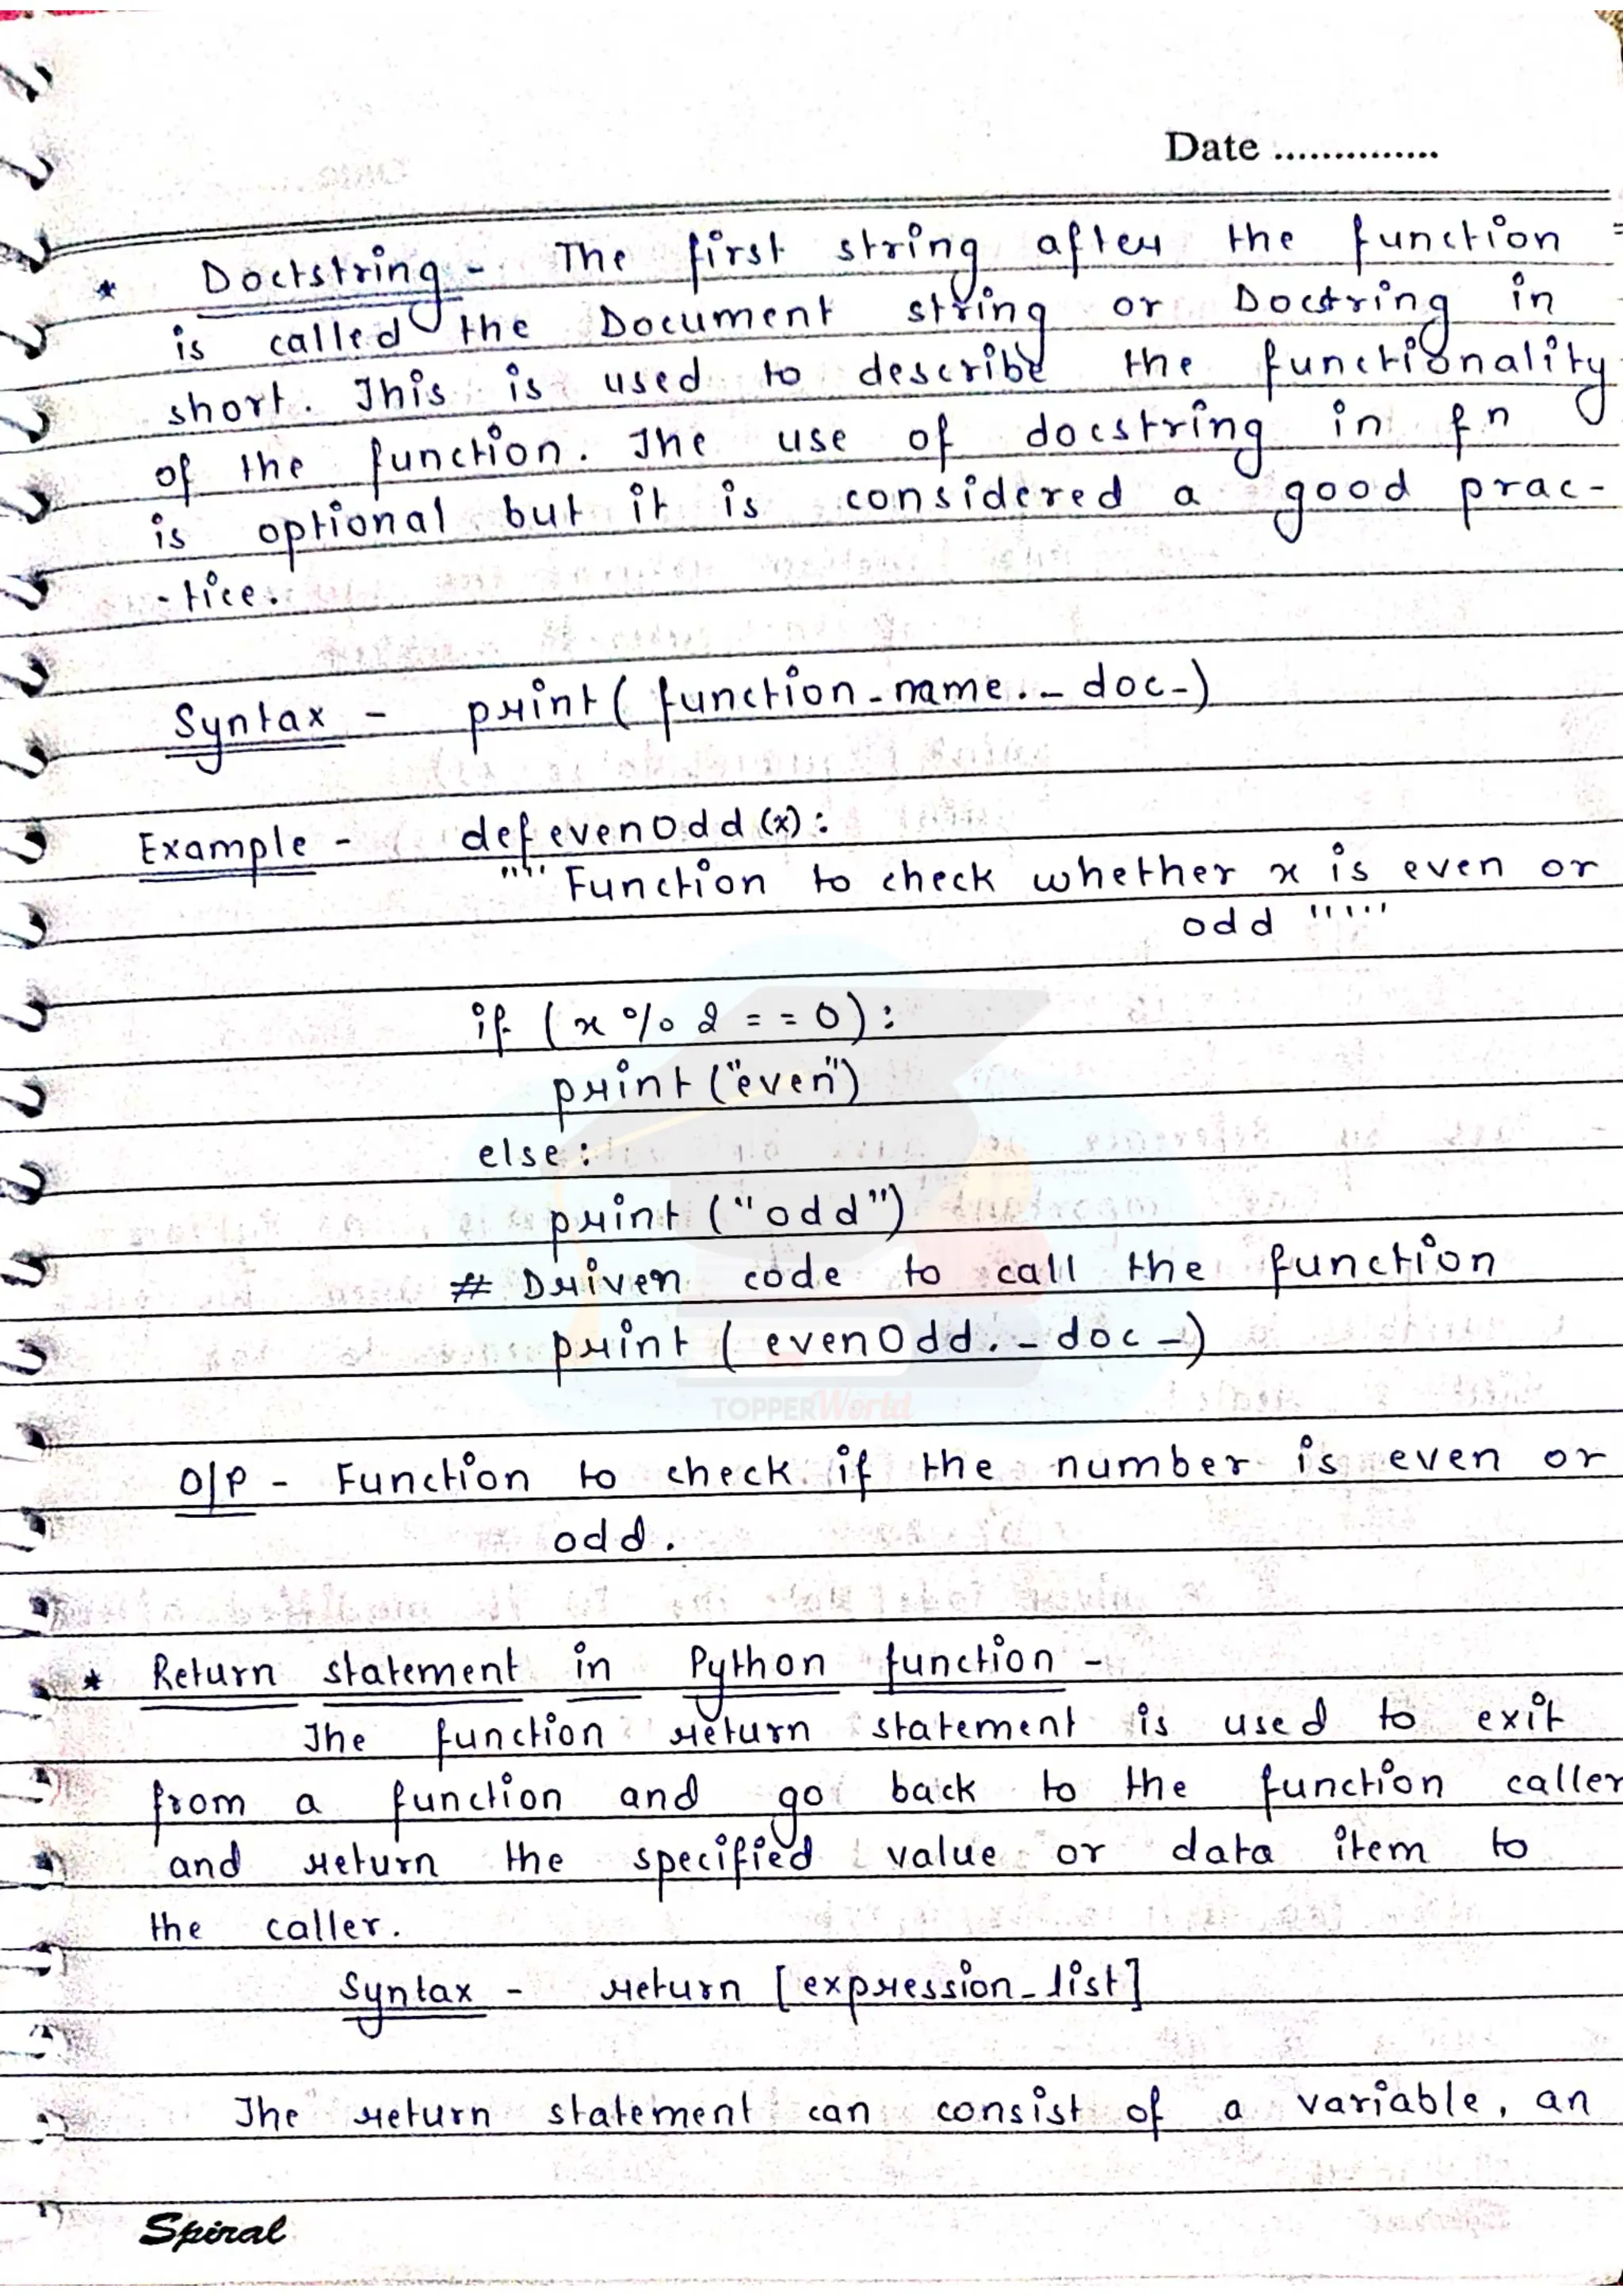 Date ...............
* Doctstring - The first string after the function
is called the Document string or Docstring in
short. This is used to describe the functionality
of the function. The use of docstring in fn
is optional but it is considered a good prac-
-tice.
Syntax - print( function_name._doc_)
Example - def evenOdd (x):
""" Function to check whether x is even or
odd """
if (x % 2 == 0):
print ("even")
else:
print ("odd")
# Driven code to call the function
print ( evenOdd._doc_)
TOPPERWorld
O/P - Function to check if the number is even or
odd.
* Return statement in Python function -
The function return statement is used to exit
from a function and go back to the function caller
and return the specified value or data item to
the caller.
Syntax - return [expression_list]
The return statement can consist of a variable, an
Spiral